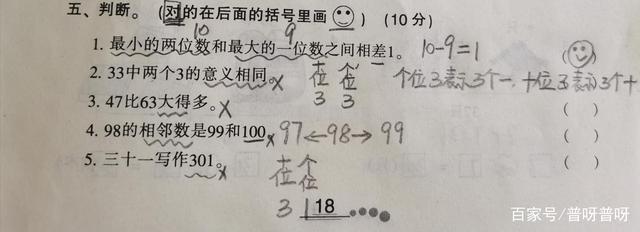 五、判断。（对的在后面的括号里画）（10分）
10 9
1. 最小的两位数和最大的一位数之间相差1。 10-9=1 （ ）
2. 33中两个3的意义相同。× 十位 个位 3 3 个位3表示3个一，十位3表示3个十
3. 47比63大得多。× （ ）
4. 98的相邻数是99和100。× 97←98→99 （ ）
5. 三十一写作301。× （ ）
十位 个位
3 1
18
百家号/普呀普呀